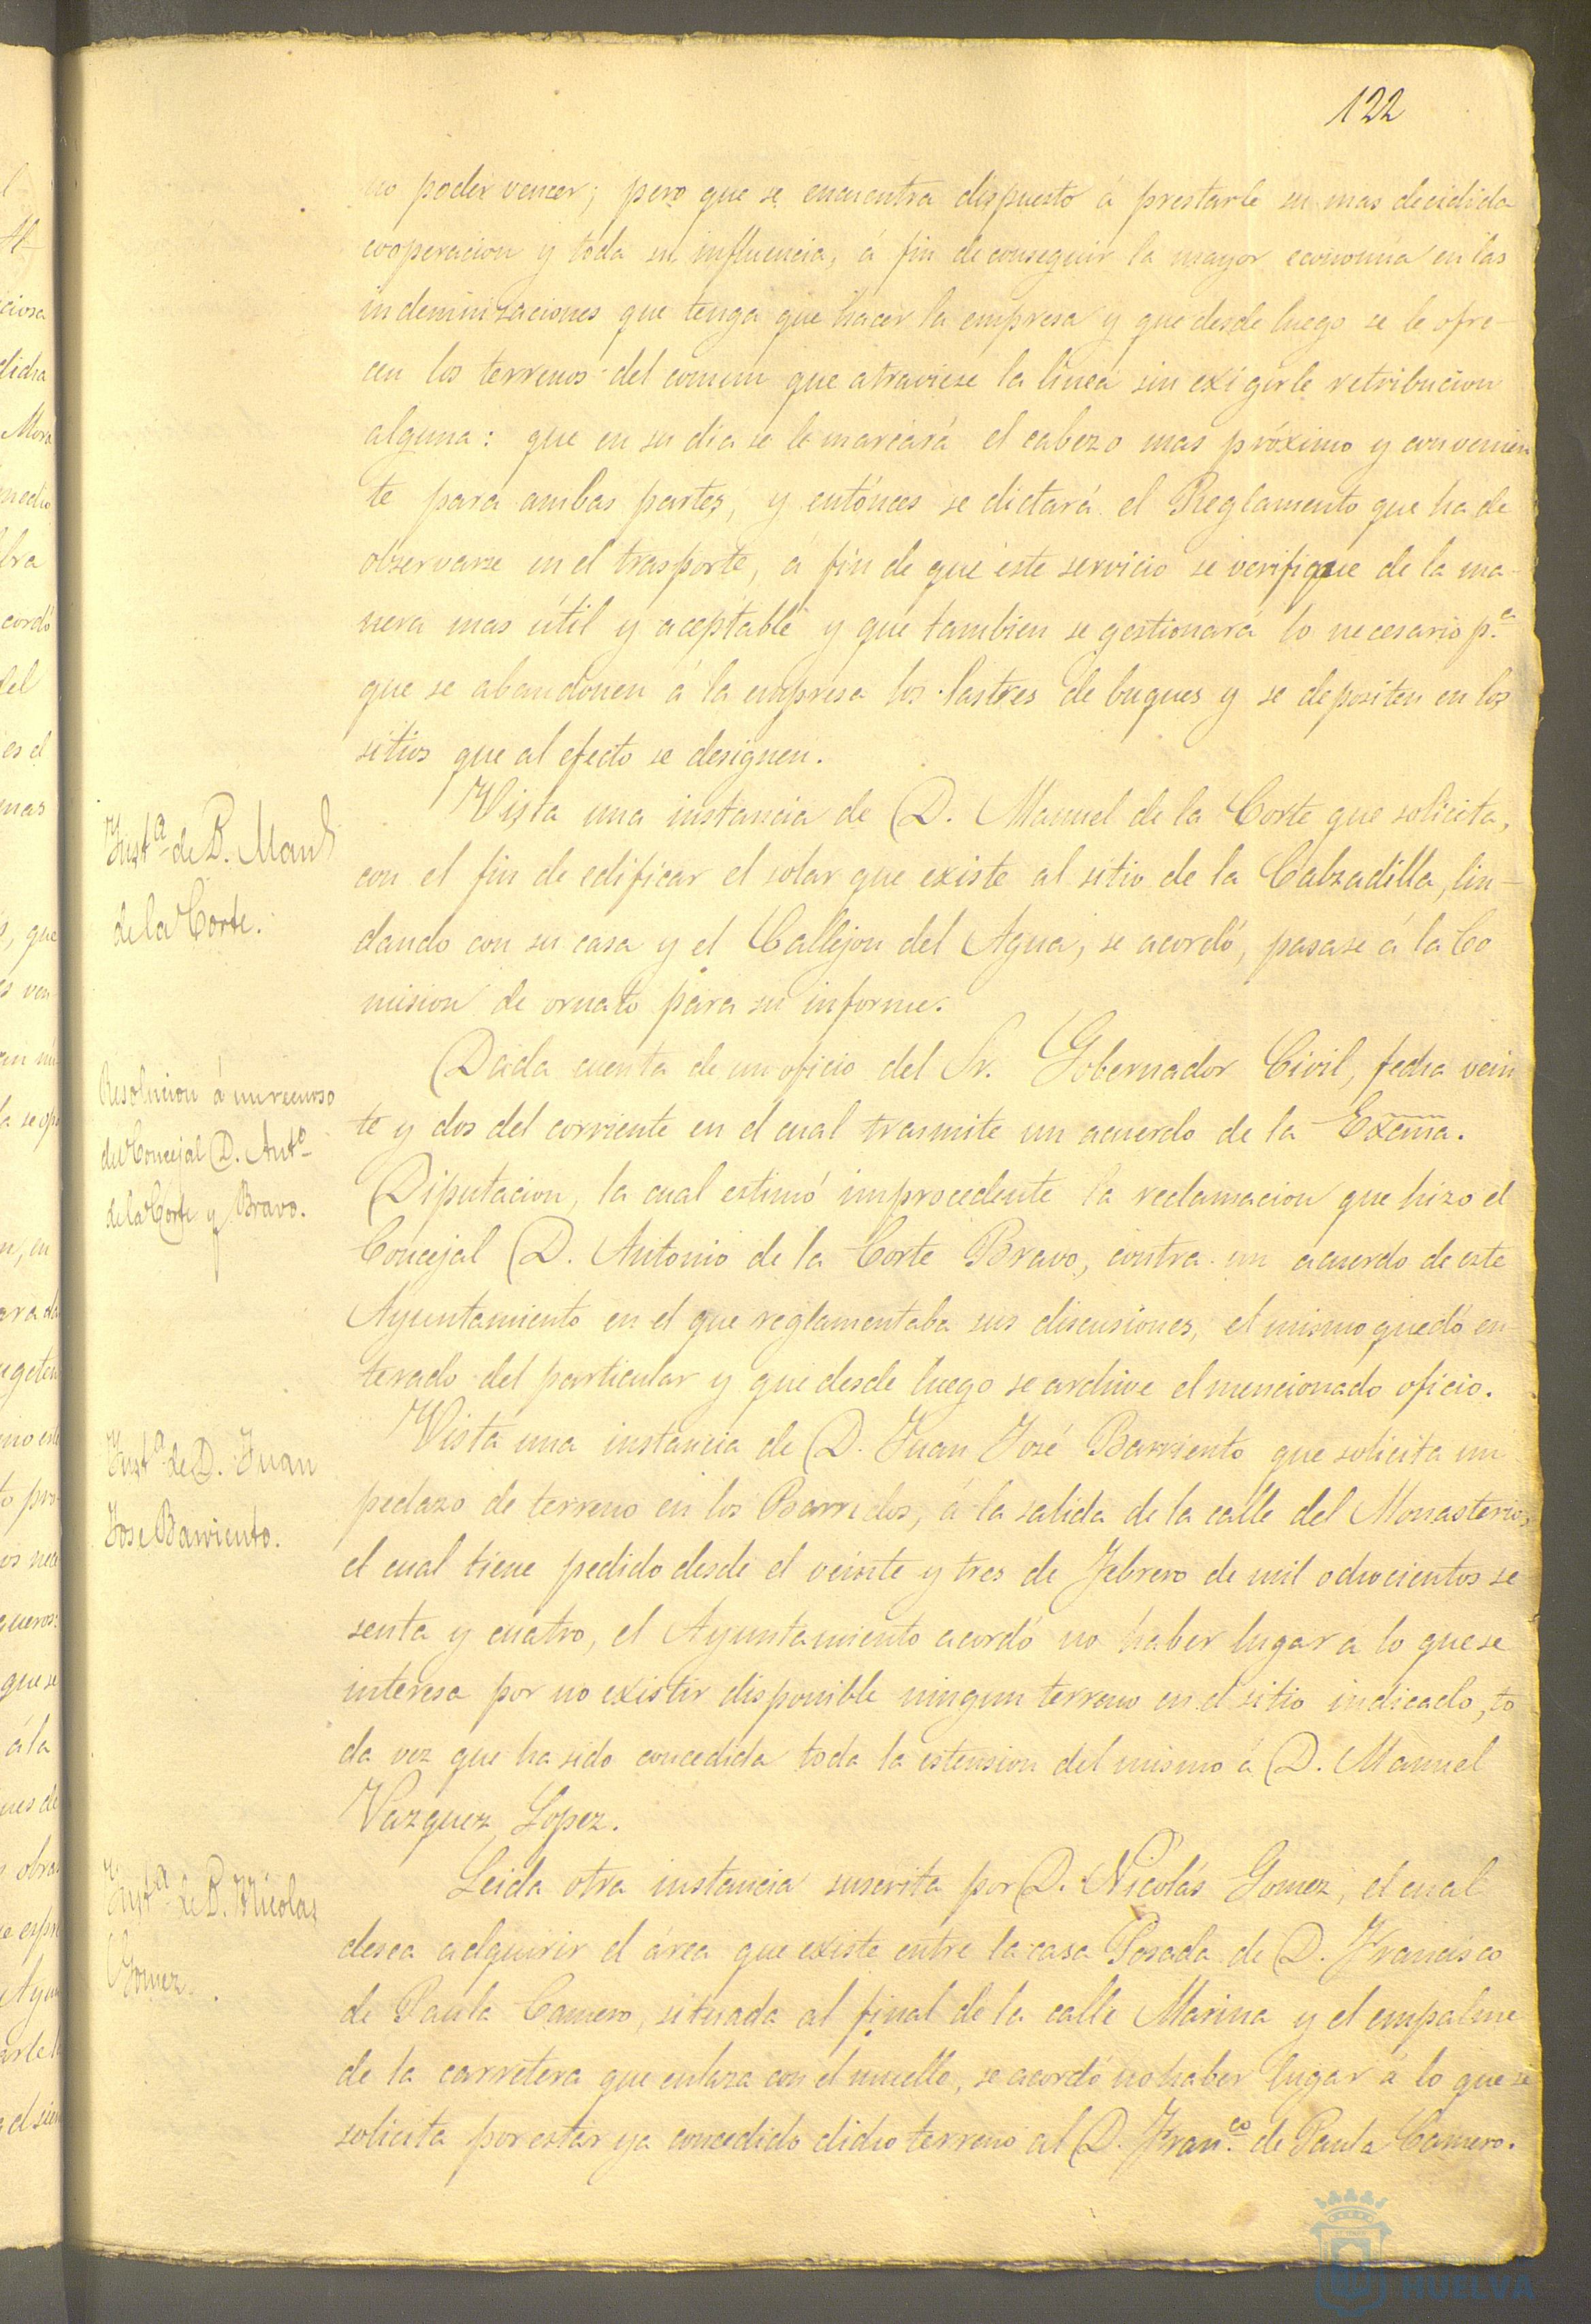 122
no poder vencer; pero que se encuentra dispuesto á prestarle su mas decidida
cooperacion y toda su influencia, á fin de conseguir la mayor economia en las
indemnizaciones que tenga que hacer la empresa y que desde luego se le ofre-
cen los terrenos del comun que atraviese la línea sin exigirle retribucion
alguna: que en su dia se le marcará el cabezo mas próximo y convenien
te para ambas partes, y entónces se dictará el Reglamento que ha de
observarse en el trasporte, á fin de que este servicio se verifique de la ma-
nera mas útil y aceptable y que tambien se gestionará lo necesario p.ª
que se abandonen á la empresa los lastres de buques y se depositen en los
sitios que al efecto se designen.
Inst.ª de D. Manl
de la Corte.
Vista una instancia de D. Manuel de la Corte que solicita,
con el fin de edificar el solar que existe al sitio de la Calzadilla, lin-
dando con su casa y el Callejon del Agua, se acordó, pasase á la Co
mision de ornato para su informe.
Resolucion á un recurso
del Concejal D. Antº
de la Corte y Bravo.
Dada cuenta de un oficio del Sr. Gobernador Civil, fecha vein
te y dos del corriente en el cual trasmite un acuerdo de la Excma.
Diputacion, la cual estimó improcedente la reclamacion que hizo el
Concejal D. Antonio de la Corte Bravo, contra un acuerdo de este
Ayuntamiento en el que reglamentaba sus discusiones, el mismo quedó en-
terado del particular y que desde luego se archive el mencionado oficio.
Inst.ª de D. Juan
Jose Barriento.
Vista una instancia de D. Juan José Barriento que solicita un
pedazo de terreno en los Barridos, á la salida de la calle del Monasterio,
el cual tiene pedido desde el veinte y tres de Febrero de mil ochocientos se
senta y cuatro, el Ayuntamiento acordó no haber lugar á lo que se
interesa por no existir disponible ningun terreno en el sitio indicado, to
da vez que ha sido concedida toda la estension del mismo á D. Manuel
Vazquez Lopez.
Inst.ª de D. Nicolas
Gomez.
Leida otra instancia suscrita por D. Nicolás Gomez, el cual
desea adquirir el área que existe entre la casa Posada de D. Francisco
de Paula Camero, situada al final de la calle Marina y el empalme
de la carretera que enlaza con el muelle, se acordó no haber lugar á lo que se
solicita por estar ya concedido dicho terreno al D. Fran.co de Paula Camero.
HUELVA